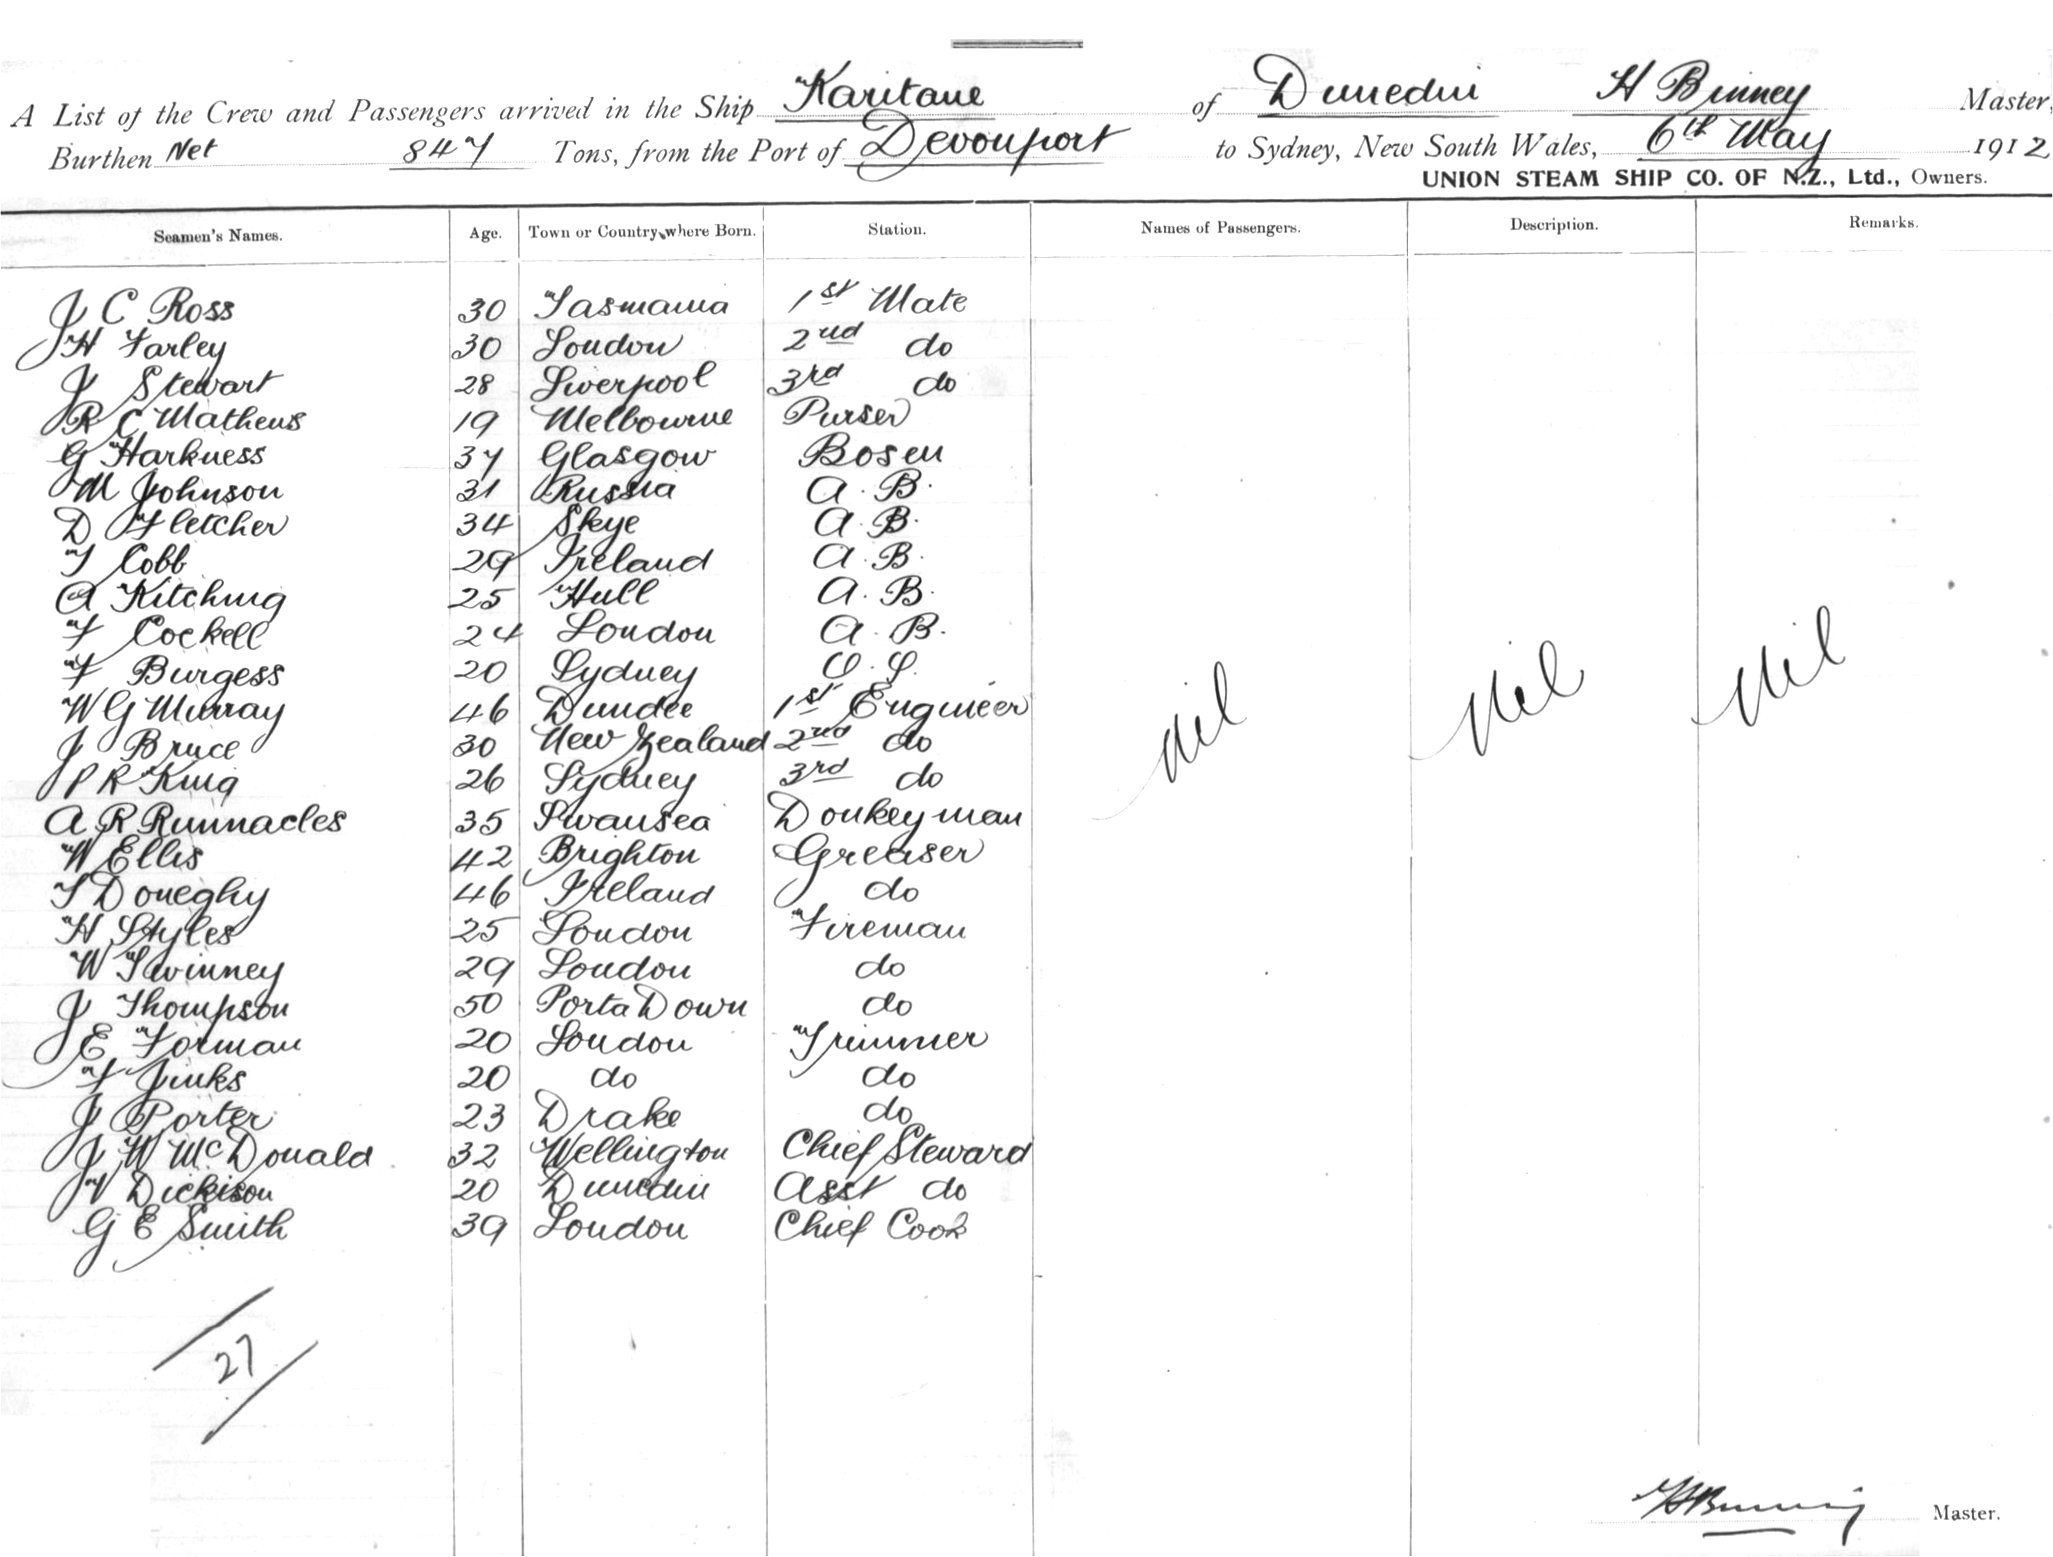 A List of the Crew and Passengers arrived in the Ship Karitane of Dunedin H Binney Master,
Burthen Net 847 Tons, from the Port of Devonport to Sydney, New South Wales, 6th May 1912
UNION STEAM SHIP CO. OF N.Z., Ltd., Owners.
Seamen's Names. Age. Town or Country where Born. Station. Names of Passengers. Description. Remarks.
J C Ross 30 Tasmania 1st Mate
H Farley 30 London 2nd do
J Stewart 28 Liverpool 3rd do
R C Mathews 19 Melbourne Purser
G Harkness 37 Glasgow Bosen
M Johnson 31 Russia A. B.
D Fletcher 34 Skye A. B.
T Cobb 29 Ireland A. B.
A Kitching 25 Hull A. B.
F Cockell 24 London A. B.
F Burgess 20 Sydney O. S.
W G Murray 46 Dundee 1st Engineer
J Bruce 30 New Zealand 2nd do
P R King 26 Sydney 3rd do
A R Runnacles 35 Swansea Donkeyman
W Ellis 42 Brighton Greaser
T Doneghy 46 Ireland do
H Styles 25 London Fireman
W Swinney 29 London do
J Thompson 50 Porta Down do
E Forman 20 London Trimmer
F Jinks 20 do do
J Porter 23 Drake do
J W McDonald 32 Wellington Chief Steward
V Dickison 20 Dunedin Asst do
G E Smith 39 London Chief Cook
Nil Nil Nil
27
H Binney Master.